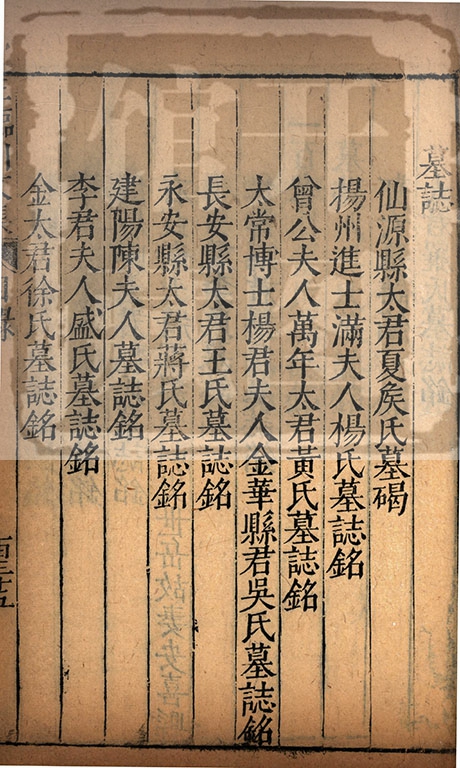 墓誌
仙源縣太君夏矦氏墓碣
楊州進士滿夫人楊氏墓誌銘
曾公夫人萬年太君黃氏墓誌銘
太常博士楊君夫人金華縣君吳氏墓誌銘
長安縣太君王氏墓誌銘
永安縣太君蔣氏墓誌銘
建陽陳夫人墓誌銘
李君夫人盛氏墓誌銘
金太君徐氏墓誌銘
目錄
百三十五